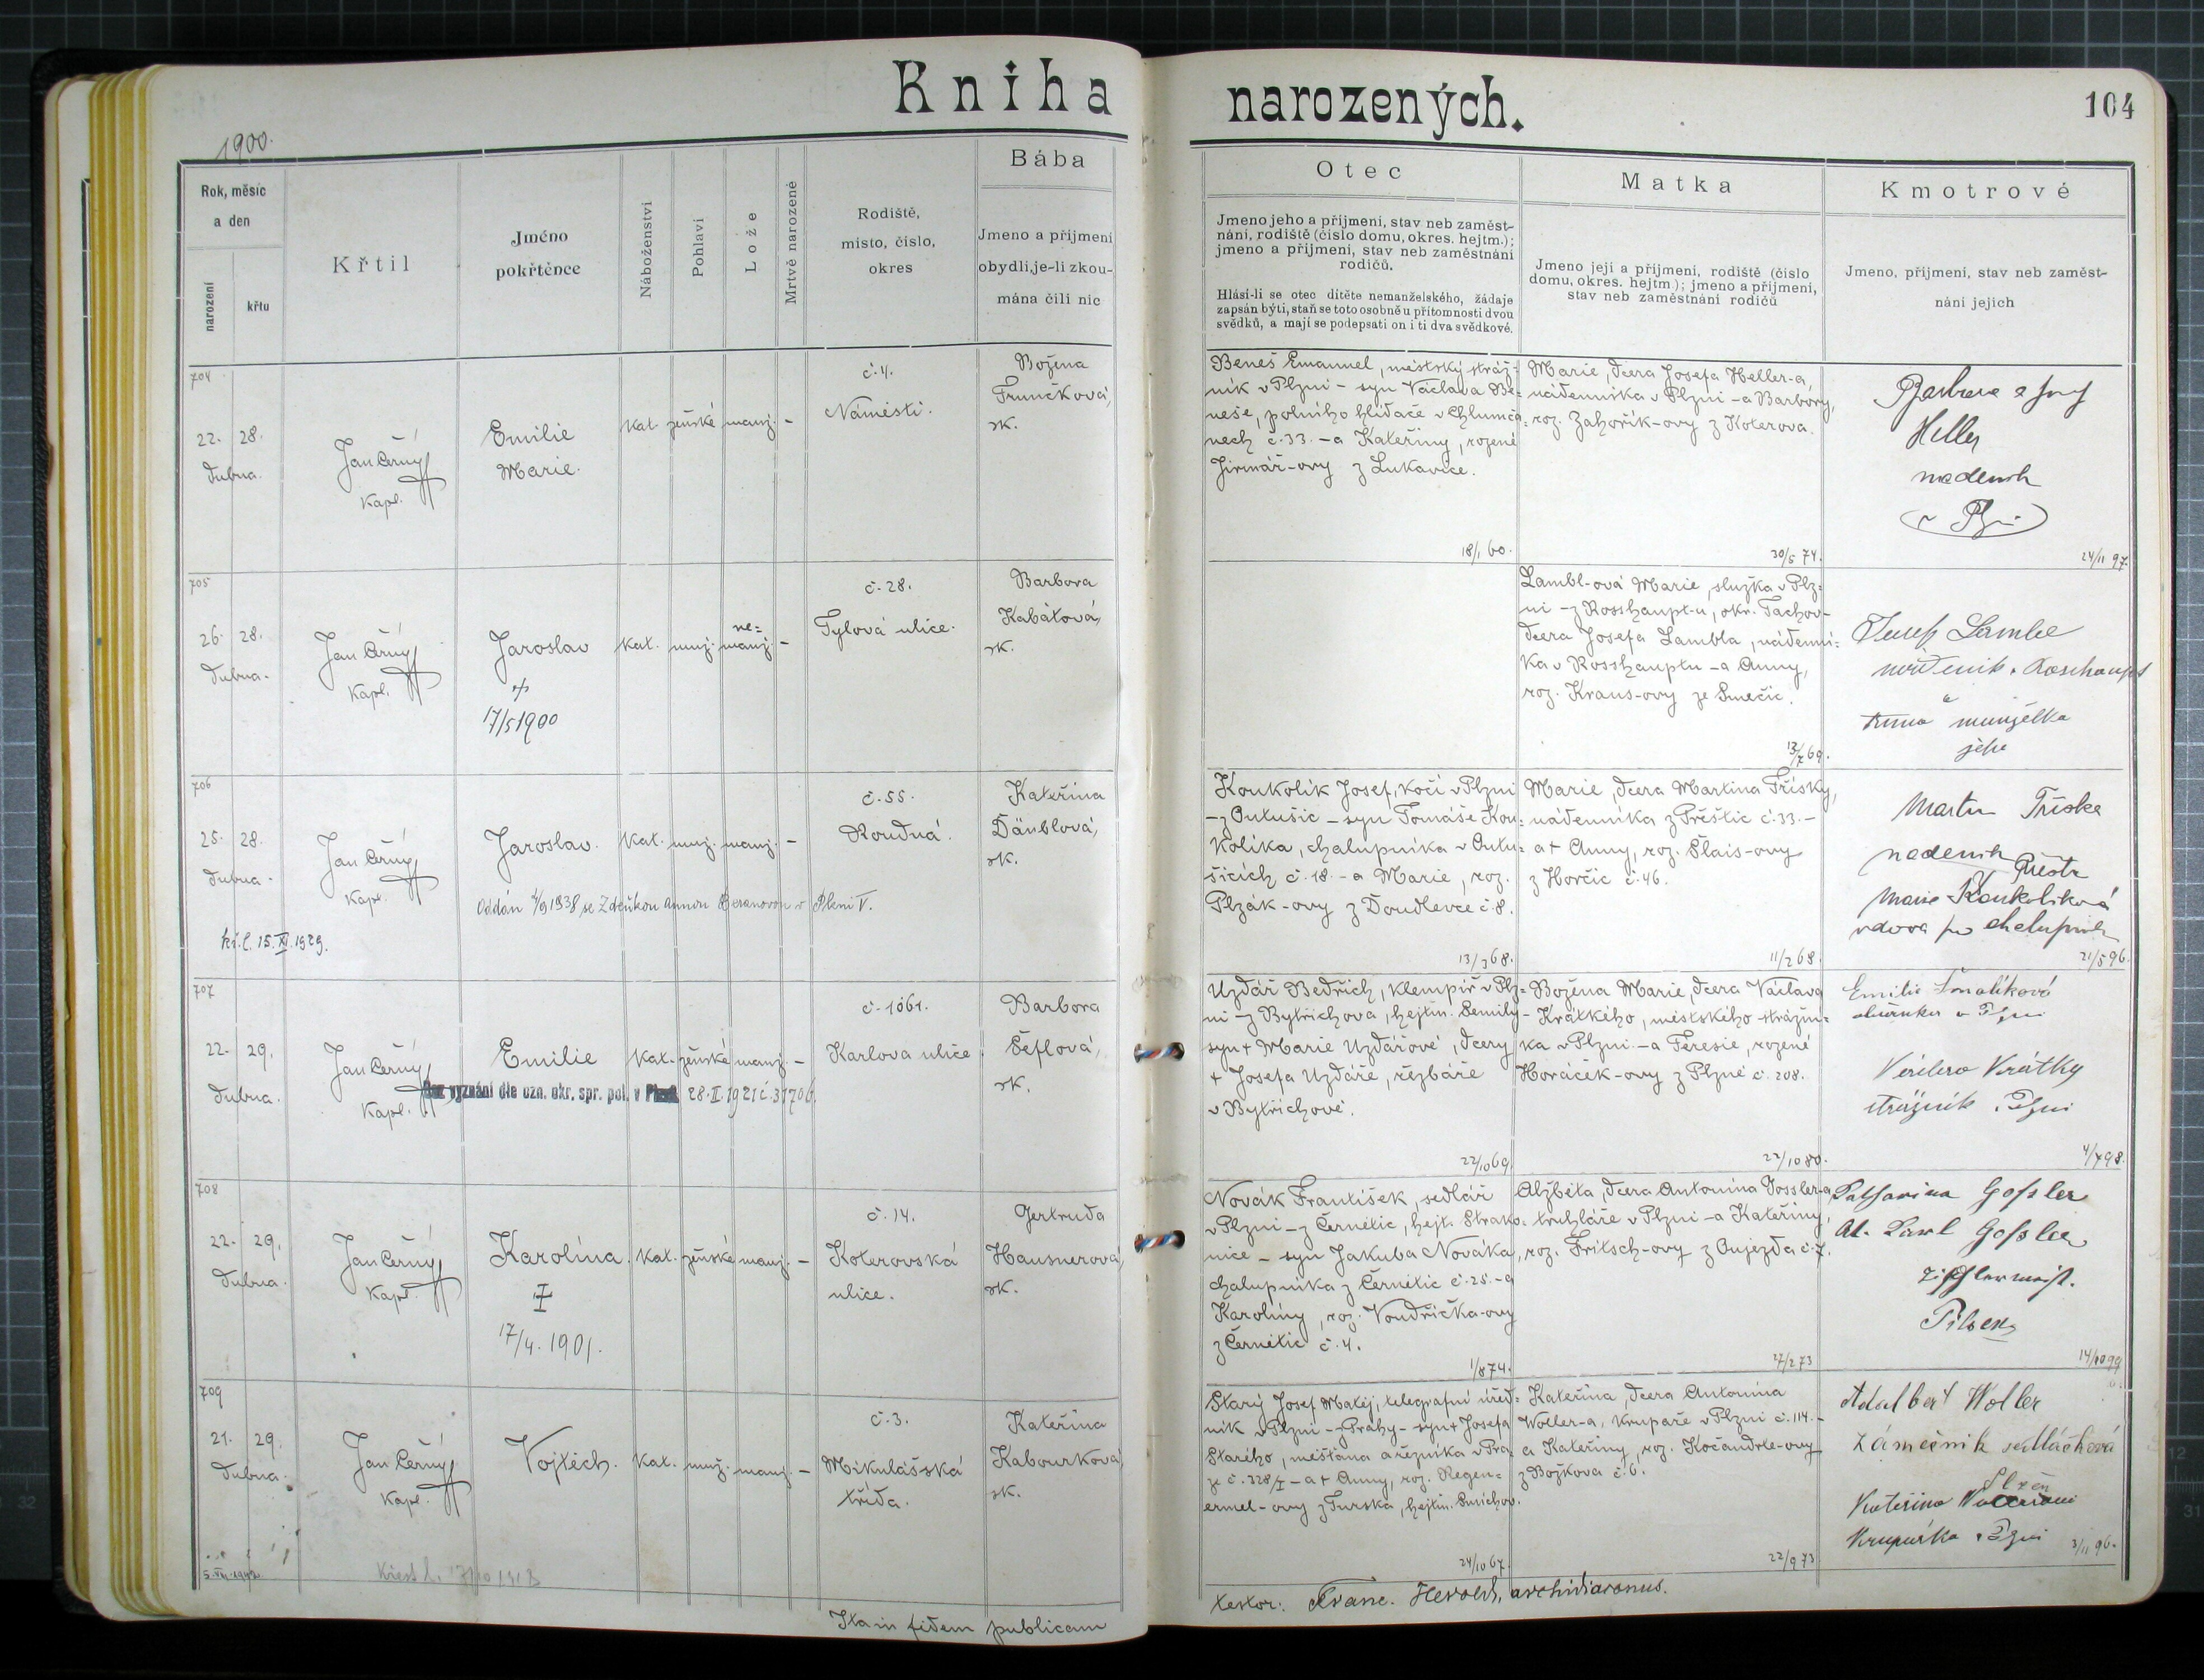 Kniha narozených.
104
1900.
Rok, měsíc
a den
narození
křtu
Křtil
Jméno
pokřtěnce
Náboženství
Pohlaví
Lože
Mrtvě narozené
Rodiště,
místo, číslo,
okres
Bába
Jmeno a příjmení
obydlí, je-li zkou-
mána čili nic
Otec
Jmeno jeho a příjmení, stav neb zaměst-
nání, rodiště (číslo domu, okres. hejtm.);
jmeno a příjmení, stav neb zaměstnání
rodičů.
Hlásí-li se otec dítěte nemanželského, žádaje
zapsán býti, staň se toto osobně u přítomnosti dvou
svědků, a mají se podepsati on i ti dva svědkové.
Matka
Jmeno její a příjmení, rodiště (číslo
domu, okres. hejtm.); jmeno a příjmení,
stav neb zaměstnání rodičů
Kmotrové
Jmeno, příjmení, stav neb zaměst-
nání jejich
704
22. 28.
dubna.
Jan Černý
Kapl.
Emilie
Marie.
kat. ženské manž. –
č. 4.
Náměstí.
Božena
Frunčková,
zk.
Beneš Emanuel, městský stráž=
ník v Plzni – syn Václava Be=
neše, polního hlídače v Chlumča=
nech č. 33. – a Kateřiny, rozené
Jirmář-ovy z Lukavice.
18/1 60.
Marie, dcera Josefa Heller-a,
nádenníka v Plzni – a Barbory,
roz. Zahořík-ovy z Koterova.
30/5 74.
Barbora a Josef
Heller
nadenik
v Plzni
24/11 97.
705
26. 28.
dubna.
Jan Černý
Kapl.
Jaroslav
+
17/5 1900
kat. muž. ne=
manž. –
č. 28.
Tylová ulice.
Barbora
Kabátová,
zk.
Lambl-ová Marie, služka v Plz=
ni – z Rosshaupt-u, okr. Tachov –
dcera Josefa Lambla, nádenní=
ka v Rosshauptu – a Anny,
roz. Kraus-ovy ze Smečic.
13/7 69.
Josef Lambl
Roschaupt
a
Anna manželka
jeho
706
25. 28.
dubna.
Jan Černý
Kapl.
Jaroslav.
kat. muž. manž. –
č. 55.
Roudná.
Kateřina
Däublová,
zk.
Oddán 4/9 1938 se Zdeňkou Annou Beranovou v Plzni V.
kř. l. 15. XI. 1929.
Koukolík Josef, kočí v Plzni
– z Ontušic – syn Tomáše Kou=
kolíka, chalupníka v Ontu=
šicích č. 18. – a Marie, roz.
Plzák-ovy z Doudlevce č. 8.
13/3 68.
Marie, dcera Martina Třísky,
nádenníka z Přeštic č. 33. –
a + Anny, roz. Šlais-ovy
z Horčic č. 46.
11/2 68.
Martin Tříska
nadenik
Marie Koukolíková
vdova po chalupník
21/5 96.
707
22. 29.
dubna.
Jan Černý
Kapl.
Emilie
kat. ženské manž. –
č. 1061.
Karlova ulice.
Barbora
Šeflová,
zk.
Bez vyznání dle ozn. okr. spr. pol. v Plzni 28. II. 1921 č. 31706.
Uzdář Bedřich, klempíř v Plz=
ni – z Bytřichova, hejtm. Semily –
syn + Marie Uzdářové, dcery
+ Josefa Uzdáře, řezbáře
v Bytřichově.
22/10 69.
Božena Marie, dcera Václava
Krátkého, městského strážní=
ka v Plzni. – a Teresie, rozené
Horáček-ovy z Plzně č. 208.
22/10 80.
Emilie Smolíková
v Plzni
Krátký
strážník Plzni
4/7 98.
708
22. 29.
dubna.
Jan Černý
Kapl.
Karolína.
17/4. 1901.
kat. ženské manž. –
č. 14.
Koterovská
ulice.
Gertruda
Hausnerová,
zk.
Novák František, sedlář
v Plzni – z Černětic, hejt. Strako=
nice – syn Jakuba Nováka,
chalupníka z Černětic č. 25. – a
Karolíny, roz. Voudřička-ovy
z Černětic č. 4.
1/8 74.
Alžběta, dcera Antonína Gossler-a,
truhláře v Plzni – a Kateřiny,
roz. Fritsch-ovy z Oujezda č. 7.
27/2 73
Katharina Goßler
Karl Goßler
Tischlermeist.
Pilsen
14/10 99
709
21. 29.
dubna.
Jan Černý
Kapl.
Vojtěch.
kat. muž. manž. –
č. 3.
Mikulášská
třída.
Kateřina
Kabourková,
zk.
Starý Josef Matěj, telegrafní úřed=
ník v Plzni – z Prahy – syn + Josefa
Starého, měšťana a řezníka v Pra=
ze č. 328/I – a + Anny, roz. Regen=
ermel-ovy z Turska, hejtm. Smíchov.
24/10 67.
Kateřina, dcera Antonína
Woller-a, krupaře v Plzni č. 114. –
a Kateřiny, roz. Kočandrle-ovy
z Božkova č. 6.
22/9 73
Adalbert Woller
zámečník
Plzeň
Kateřina Wollerová
krupařka v Plzni
3/11 96.
Ita in fidem publicam
testor: Franc. Herold, archidiaconus.